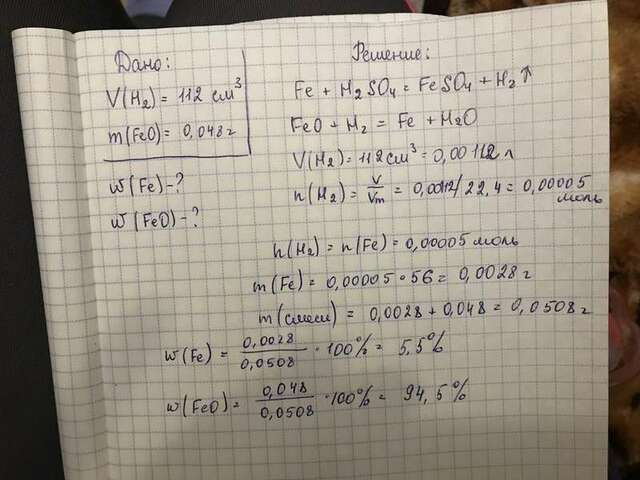 Дано:
V(H₂) = 112 см³
m(FeO) = 0,048 г
w(Fe) - ?
w(FeO) - ?
Решение:
Fe + H₂SO₄ = FeSO₄ + H₂↑
FeO + H₂ = Fe + H₂O
V(H₂) = 112 см³ = 0,00112 л
n(H₂) = V/Vm = 0,00112/22,4 = 0,00005 моль
n(H₂) = n(Fe) = 0,00005 моль
m(Fe) = 0,00005 • 56 = 0,0028 г
m(смеси) = 0,0028 + 0,048 = 0,0508 г
w(Fe) = 0,0028/0,0508 • 100% = 5,5%
w(FeO) = 0,048/0,0508 • 100% = 94,5%